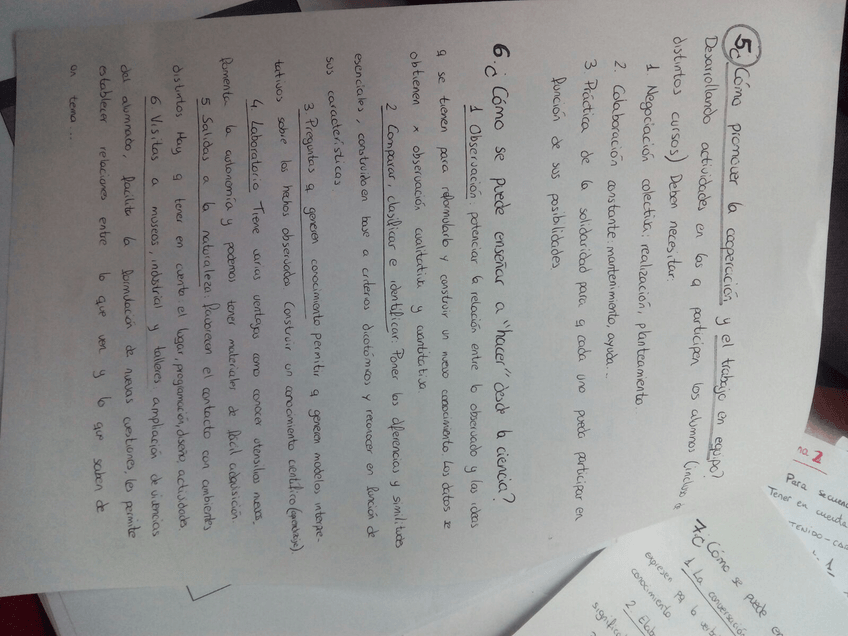 5 ¿Cómo promover la cooperación y el trabajo en equipo?
Desarrollando actividades en las q participen los alumnos (incluso d
distintos cursos) Deben necesitar:
1. Negociación colectiva: realización, planteamiento
2. Colaboración constante: mantenimiento, ayuda...
3 Práctica de la solidaridad para q cada uno pueda participar en
función de sus posibilidades
6. ¿Cómo se puede enseñar a "hacer" desde la ciencia?
1 Observación: potenciar la relación entre lo observado y las ideas
q se tienen para reformularlo y construir un nuevo conocimiento. Los datos se
obtienen x observación cualitativa y cuantitativa
2 Comparar, clasificar e identificar: Poner las diferencias y similitudes
esenciales, construido en base a criterios dicotómicos y reconocer en función de
sus características
3 Preguntas q generen conocimiento permitir q generen modelos interpre-
tativos sobre los hechos observados. Construir un conocimiento científico (aprendizaje)
4 Laboratorio Tiene varias ventajas como conocer utensilios nuevos,
fomenta la autonomía y podemos tener materiales de fácil adquisición
5 Salidas a la naturaleza: favorecen el contacto con ambientes
distintos Hay q tener en cuenta el lugar, programación, diseño, actividades
6 Visitas a museos, industrial y talleres ampliación de vivencias
del alumnado, facilita la formulación de nuevas cuestiones, les permite
establecer relaciones entre lo que ven y lo que saben de
un tema...
na 2
Para secuen
Tener en cuenta
TENIDO-
1.
7. ¿Cómo se puede en
1 La conversación
expresen pq lo
conocimiento
2 Elab
signific